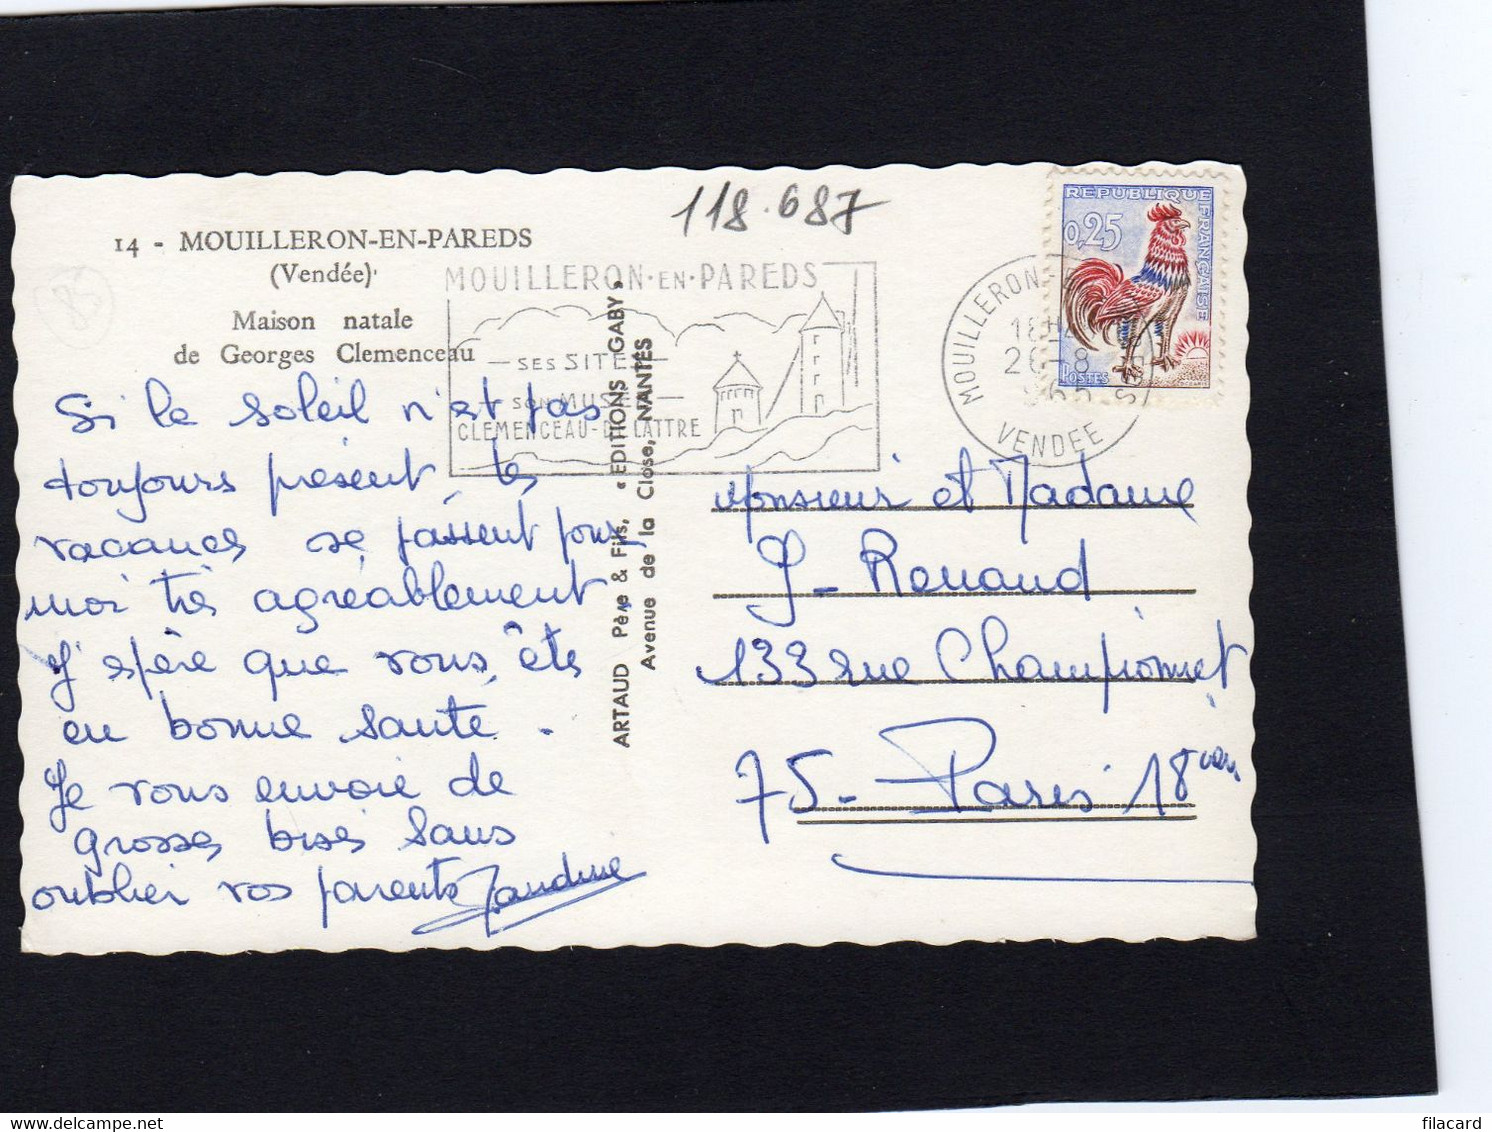 118.687
14 - MOUILLERON-EN-PAREDS
(Vendée)
Maison natale
de Georges Clemenceau
85
MOUILLERON·EN·PAREDS
SES SITES
SON MUSÉE
CLEMENCEAU-DE LATTRE
MOUILLERON
18H
26-8
1965
VENDEE
REPUBLIQUE FRANÇAISE
0,25
POSTES
Si le soleil n'est pas
toujours présent, les
vacances se passent pour
moi très agréablement.
J'espère que vous êtes
en bonne santé.
Je vous envoie de
grosses bises sans
oublier vos parents
ARTAUD Père & Fils, « EDITIONS GABY »
Avenue de la Close, NANTES
Monsieur et Madame
J- Renaud
133 rue Championnet
75- Paris 18
filacard